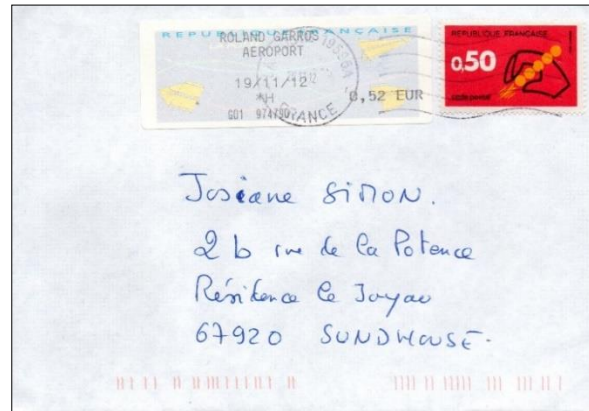 REPUBLIQUE FRANÇAISE
ROLAND GARROS
AEROPORT
19/11/12
*H
0,52 EUR
G01 974790
FRANCE
REPUBLIQUE FRANÇAISE
0,50
code postal
Josiane SIMON.
2 b rue de la Potence
Résidence le Joyau
67920 SUNDHOUSE.